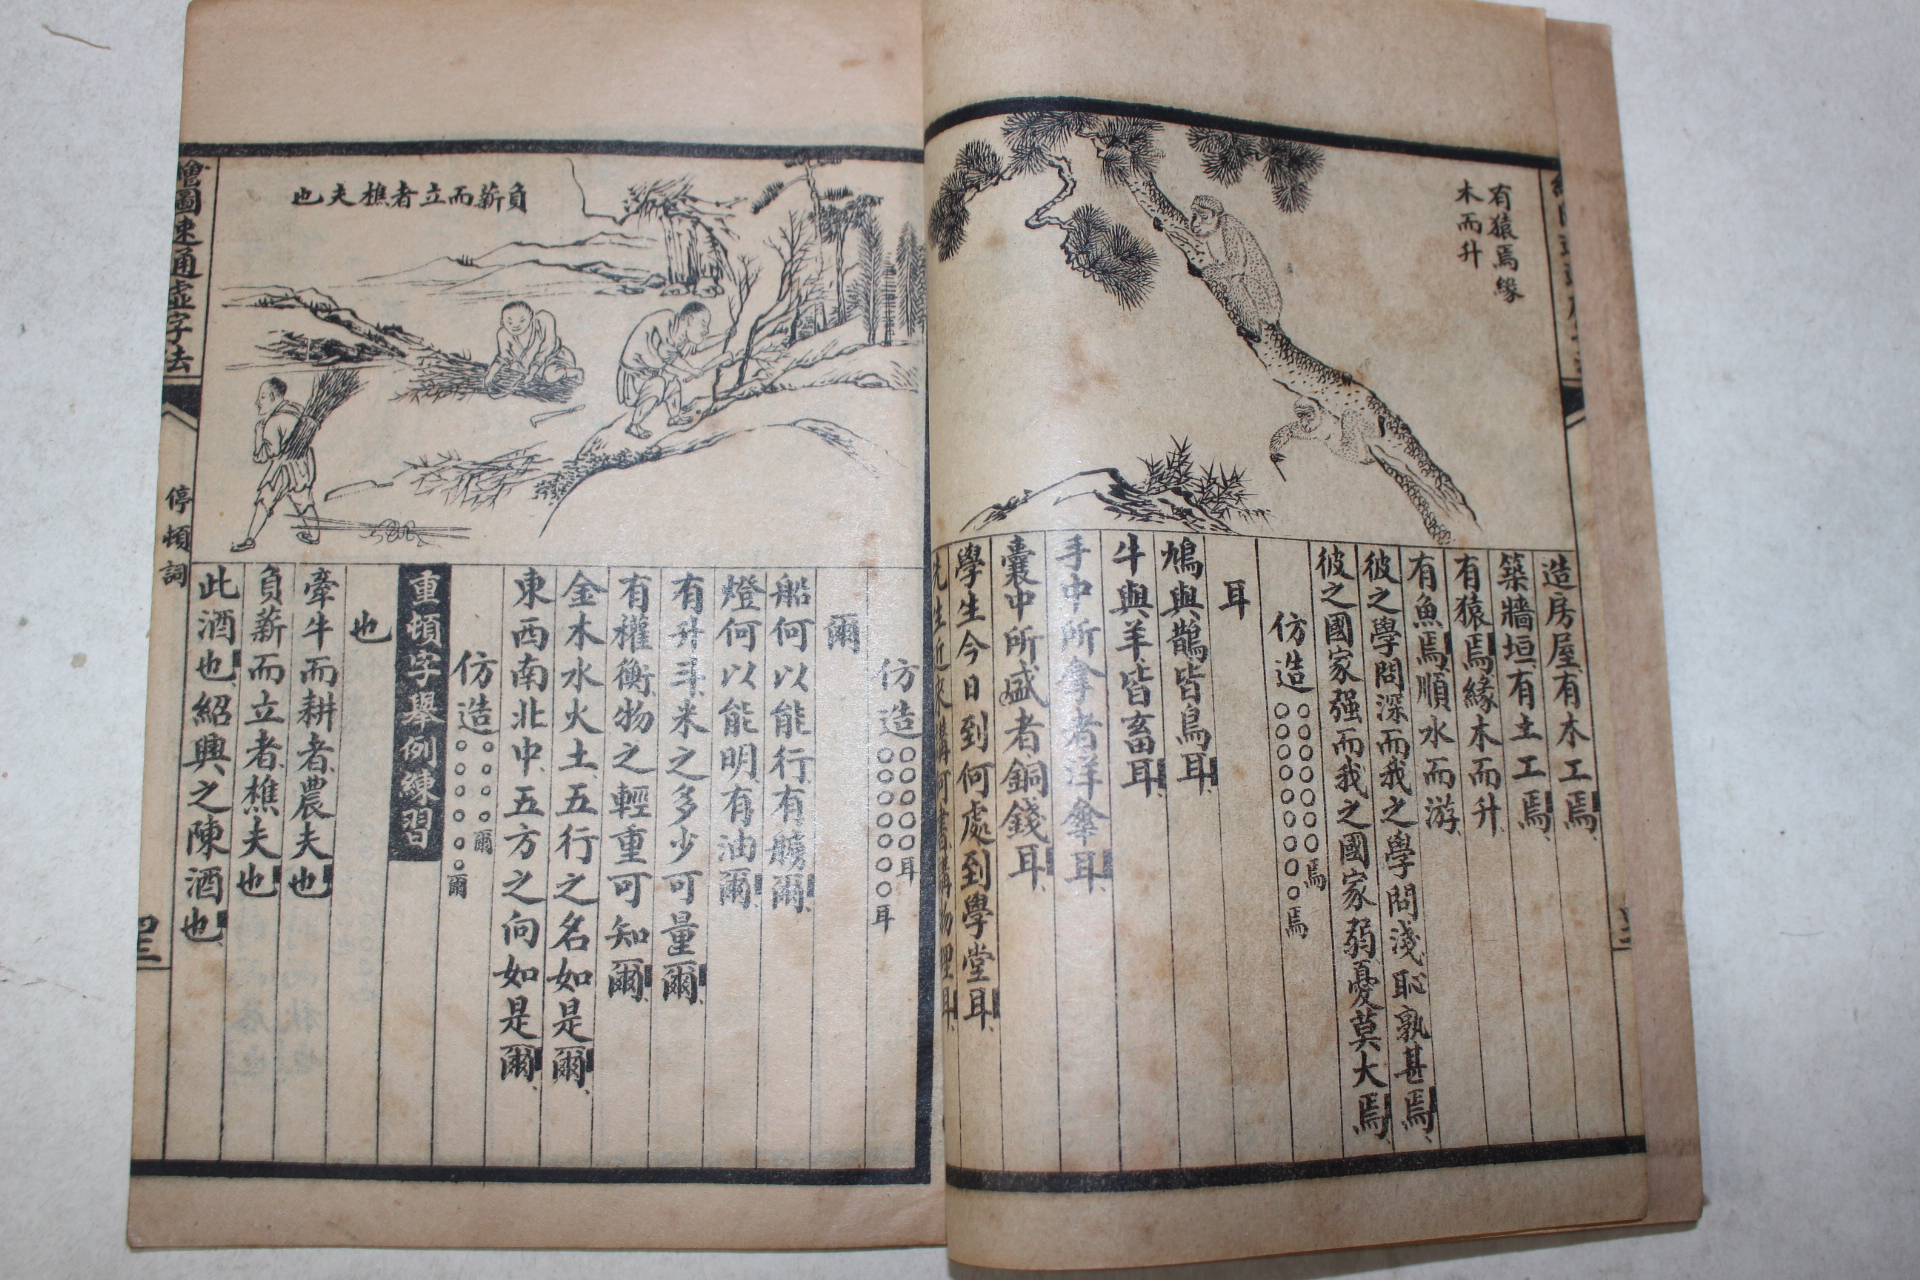 有猿焉緣
木而升
造房屋有木工焉
築牆垣有土工焉
有猿焉緣木而升
有魚焉順水而游
彼之學問深而我之學問淺恥孰甚焉
彼之國家强而我之國家弱憂莫大焉
仿造○○○○○○焉○○○○○○○焉
耳
鳩與鵲皆鳥耳
牛與羊皆畜耳
手中所拿者洋傘耳
囊中所盛者銅錢耳
學生今日到何處到學堂耳
先生近來講何書講物理耳
仿造○○○○○耳○○○○○○○耳
爾
船何以能行有艣爾
燈何以能明有油爾
有升斗米之多少可量爾
有權衡物之輕重可知爾
金木水火土五行之名如是爾
東西南北中五方之向如是爾
仿造○○○○爾○○○○○○爾
重頓字舉例練習
也
牽牛而耕者農夫也
負薪而立者樵夫也
此酒也紹興之陳酒也
負薪而立者樵夫也
繪圖速通虛字法
停頓詞
四三